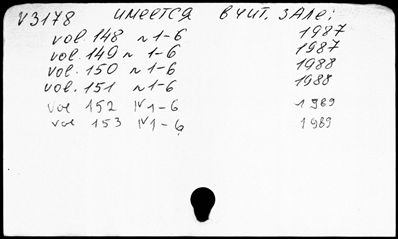 V3178 имеется в чит. зале:
vol 148 N 1-6 1987
vol. 149 N 1-6 1987
vol. 150 N 1-6 1988
vol. 151 N 1-6 1988
vol 152 N 1-6 1989
vol 153 N 1-6 1989